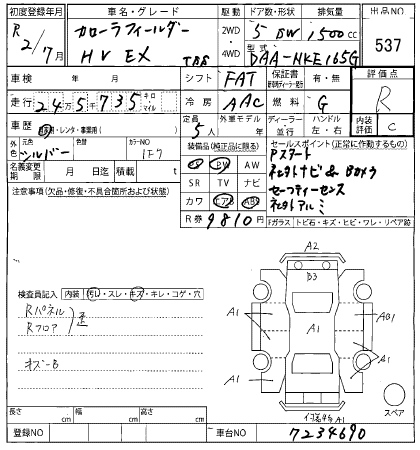 初度登録年月 車名・グレード 駆動 ドア数・形状 排気量 出品NO
R 2/7月 カローラフィールダー 2WD 5 DW 1500cc 537
HV EX TBS 4WD 型式 DAA-NKE165G
車検 年 月 シフト FAT 保証書 有・無 評価点
走行 245735 キロ マイル 冷房 AAC 燃料 G R
車歴 自家用・レンタ・事業用( ) 定員 5人 外車モデル 年 ディーラー 並行 ハンドル 左・右 内装評価 C
外色 元色 シルバー 色替 カラーNO 1F7 装備品(純正品に限る) セールスポイント(正常に作動するもの)
名義変更期限 月 日迄 積載 t PS PW AW Pスタート
注意事項(欠品・修復・不具合箇所および状態) SR TV ナビ 社外ナビ & Bカメラ
カワ エアB ABS セーフティーセンス
R券 9810円 社外アルミ
Fガラス トビ石・キズ・ヒビ・ワレ・リペア跡
A2
B3
検査員記入 内装 汚レ・スレ・キズ・キレ・コゲ・穴
Rパネル
Rフロア
A1 A1 AB1
キズーB
A1 A1
A1
スペア
長さ cm 幅 cm 高さ cm
登録NO 車台NO 7234690